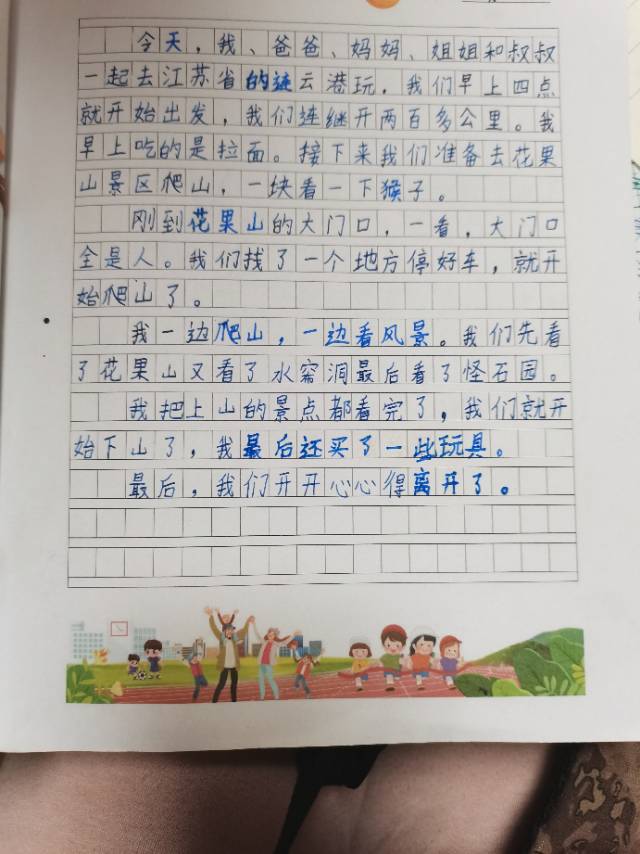 今天，我、爸爸、妈妈、姐姐和叔叔
一起去江苏省的连云港玩，我们早上四点
就开始出发，我们连继开两百多公里。我
早上吃的是拉面。接下来我们准备去花果
山景区爬山，一块看一下猴子。
刚到花果山的大门口，一看，大门口
全是人。我们找了一个地方停好车，就开
始爬山了。
我一边爬山，一边看风景。我们先看
了花果山又看了水帘洞最后看了怪石园。
我把上山的景点都看完了，我们就开
始下山了，我最后还买了一些玩具。
最后，我们开开心心得离开了。